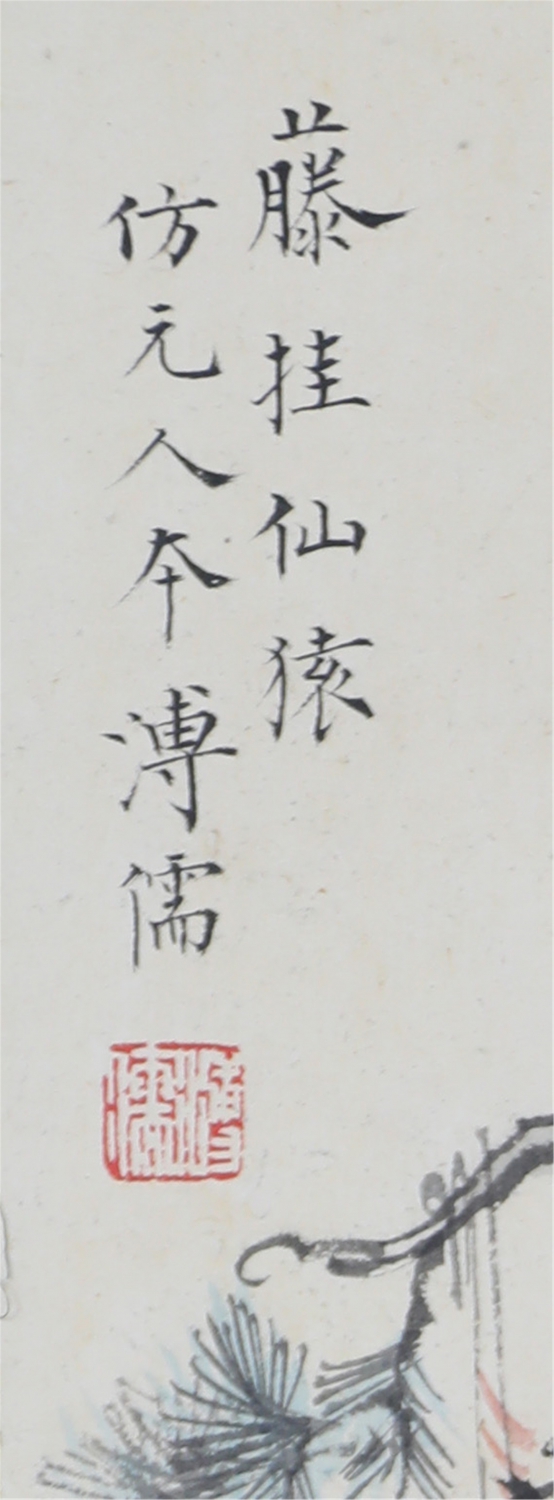 藤挂仙猿
仿元人本溥儒
溥儒